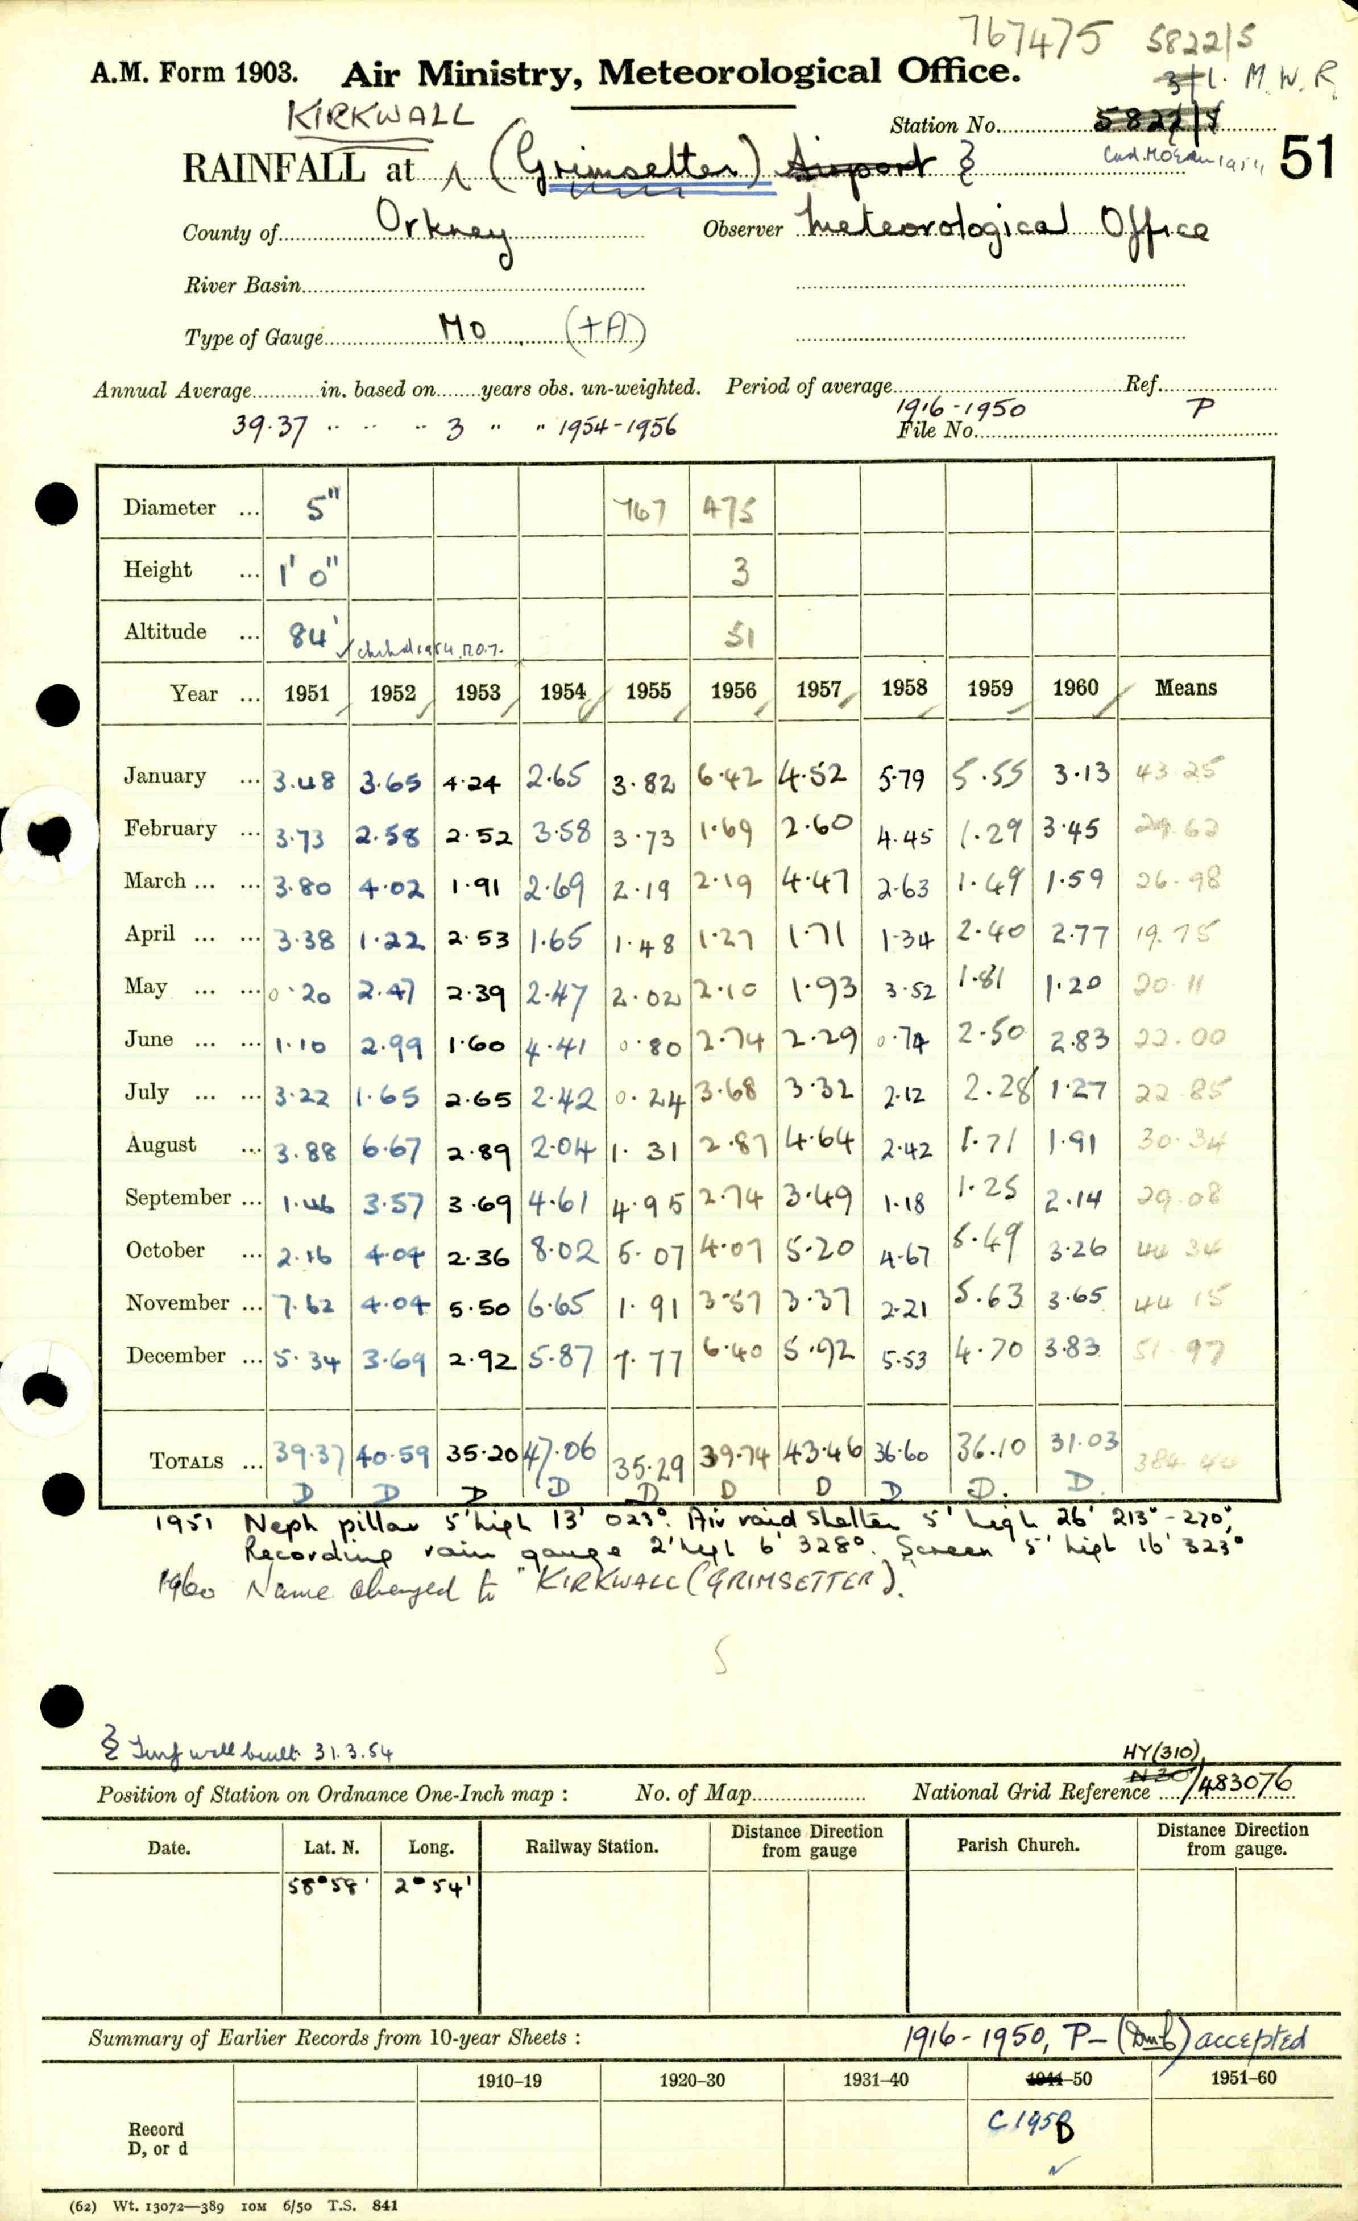 767475 5822/5
A.M. Form 1903. Air Ministry, Meteorological Office. M.W.R.
KIRKWALL
Station No. 5822/5
RAINFALL at (Grimsetter) Airport 51
County of Orkney Observer Meteorological Office
River Basin
Type of Gauge MO (+A)
Annual Average in. based on years obs. un-weighted. Period of average Ref.
39.37 " " " 3 " " 1954-1956 1916-1950 P
File No.
Diameter ... 5" 767 475
Height ... 1' 0" 3
Altitude ... 84' 51
Year ... 1951 1952 1953 1954 1955 1956 1957 1958 1959 1960 Means
January ... 3.48 3.65 4.24 2.65 3.82 6.42 4.52 5.79 5.55 3.13 43.25
February ... 3.73 2.58 2.52 3.58 3.73 1.69 2.60 4.45 1.29 3.45 29.62
March ... ... 3.80 4.02 1.91 2.69 2.19 2.19 4.47 2.63 1.49 1.59 26.98
April ... ... 3.38 1.22 2.53 1.65 1.48 1.27 1.71 1.34 2.40 2.77 19.75
May ... ... 0.20 2.47 2.39 2.47 2.02 2.10 1.93 3.52 1.81 1.20 20.11
June ... ... 1.10 2.99 1.60 4.41 0.80 2.74 2.29 0.74 2.50 2.83 22.00
July ... ... 3.22 1.65 2.65 2.42 0.24 3.68 3.32 2.12 2.28 1.27 22.85
August ... 3.88 6.67 2.89 2.04 1.31 2.87 4.64 2.42 1.71 1.91 30.34
September ... 1.46 3.57 3.69 4.61 4.95 2.74 3.49 1.18 1.25 2.14 29.08
October ... 2.16 4.04 2.36 8.02 5.07 4.07 5.20 4.67 5.49 3.26 44.34
November ... 7.62 4.04 5.50 6.65 1.91 3.57 3.37 2.21 5.63 3.65 44.15
December ... 5.34 3.69 2.92 5.87 7.77 6.40 5.92 5.53 4.70 3.83 51.97
TOTALS ... 39.37 40.59 35.20 47.06 35.29 39.74 43.46 36.60 36.10 31.03 384.44
D D D D D D D D D. D.
1951 Neph pillar 5' high 13' 023°. Air raid shelter 5' high 26' 213°-270°,
Recording rain gauge 2' high 6' 328°. Screen 5' high 16' 323°
1960 Name changed to "KIRKWALL (GRIMSETTER)."
Turf wall built 31.3.54
HY(310)
Position of Station on Ordnance One-Inch map : No. of Map National Grid Reference N30/483076
Date. Lat. N. Long. Railway Station. Distance Direction from gauge Parish Church. Distance Direction from gauge.
58° 58' 2° 54'
Summary of Earlier Records from 10-year Sheets : 1916-1950, P- accepted
1910–19 1920–30 1931–40 1941–50 1951–60
Record
D, or d
(62) Wt. 13072—389 IOM 6/50 T.S. 841